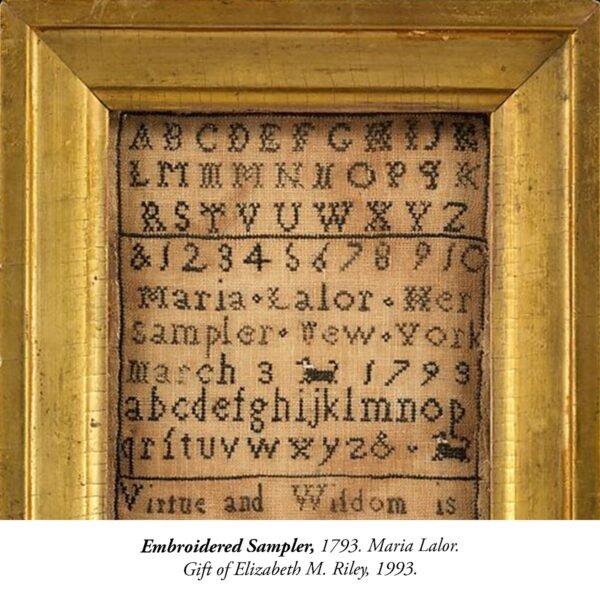 A B C D E F G H I J K
L M M M N N O P q K
R S T V U W X Y Z
& 1 2 3 4 5 6 7 8 9 10
Maria · Lalor · Her
Sampler · New · York
March 3 1793
abcdefghijklmnop
qrſtuvwxyz& ·
Virtue and Wiſdom is
Embroidered Sampler, 1793. Maria Lalor.
Gift of Elizabeth M. Riley, 1993.